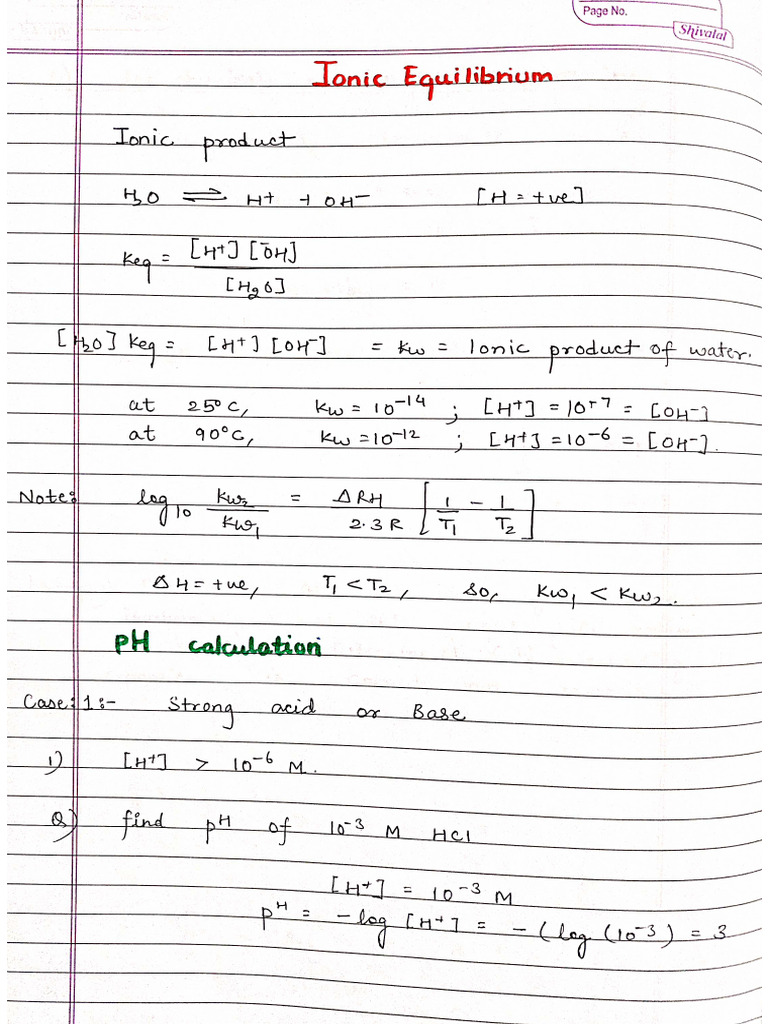 Page No.
Shivalal
Ionic Equilibrium
Ionic product
H2O ⇌ H+ + OH- [H = +ve]
Keq = [H+] [ŌH] / [H2O]
[H2O] Keq = [H+] [OH-] = Kw = Ionic product of water.
at 25°C, Kw = 10-14 ; [H+] = 10-7 = [OH-]
at 90°C, Kw = 10-12 ; [H+] = 10-6 = [OH-].
Note: log10 Kw2 / Kw1 = ΔRH / 2.3R [1/T1 - 1/T2]
ΔH = +ve, T1 < T2, so, Kw1 < Kw2.
PH calculation
Case: 1:- Strong acid or Base
1) [H+] > 10-6 M.
Q) find pH of 10-3 M HCl
[H+] = 10-3 M
pH = -log [H+] = -(log (10-3) = 3